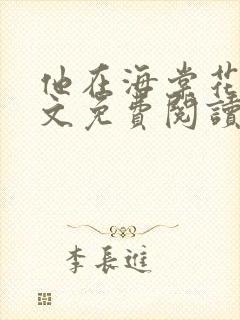 他在海棠花
文免費閱讀
李長進